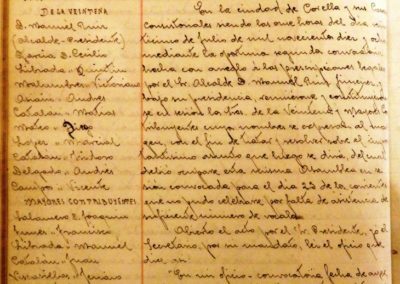 DE LA VEINTENA
D. Manuel Ruiz
(Alcalde-Presidente)
García D. Cecilio
Filtrada - Quintín
Malumbres - Victoriano
Arano - Andrés
Catalán - Matías
Mateo - Pío
López - Marcial
Catalán - Isidoro
Delgado - Andrés
Campo - Vicente
MAYORES CONTRIBUYENTES
Salamero D. Joaquín
Francisco
Manuel
Catalán - Juan
En la ciudad de Corella y sus Casas
Consistoriales siendo las once horas del día
de julio de mil novecientos diez y ocho
mediante la oportuna segunda convocatoria
hecha con arreglo a las prescripciones legales
por el Sr. Alcalde D. Manuel Ruiz
bajo su presidencia,
en sesión los Sres. de la Veintena y Mayores Con-
tribuyentes cuyos nombres se expresan al mar-
gen, con el fin de tratar y resolver sobre el impor-
tantísimo asunto que luego se dirá, del cual
debió ocuparse esta misma Asamblea en se-
sión convocada para el día 23 de los corrientes
que no pudo celebrarse por falta de asistencia de
suficiente número de vocales.
Abierto el acto por el Sr. Presidente, yo el
Secretario, por su mandato, leí el oficio que
dice así:
"En mi oficio-convocatoria fecha de ayer